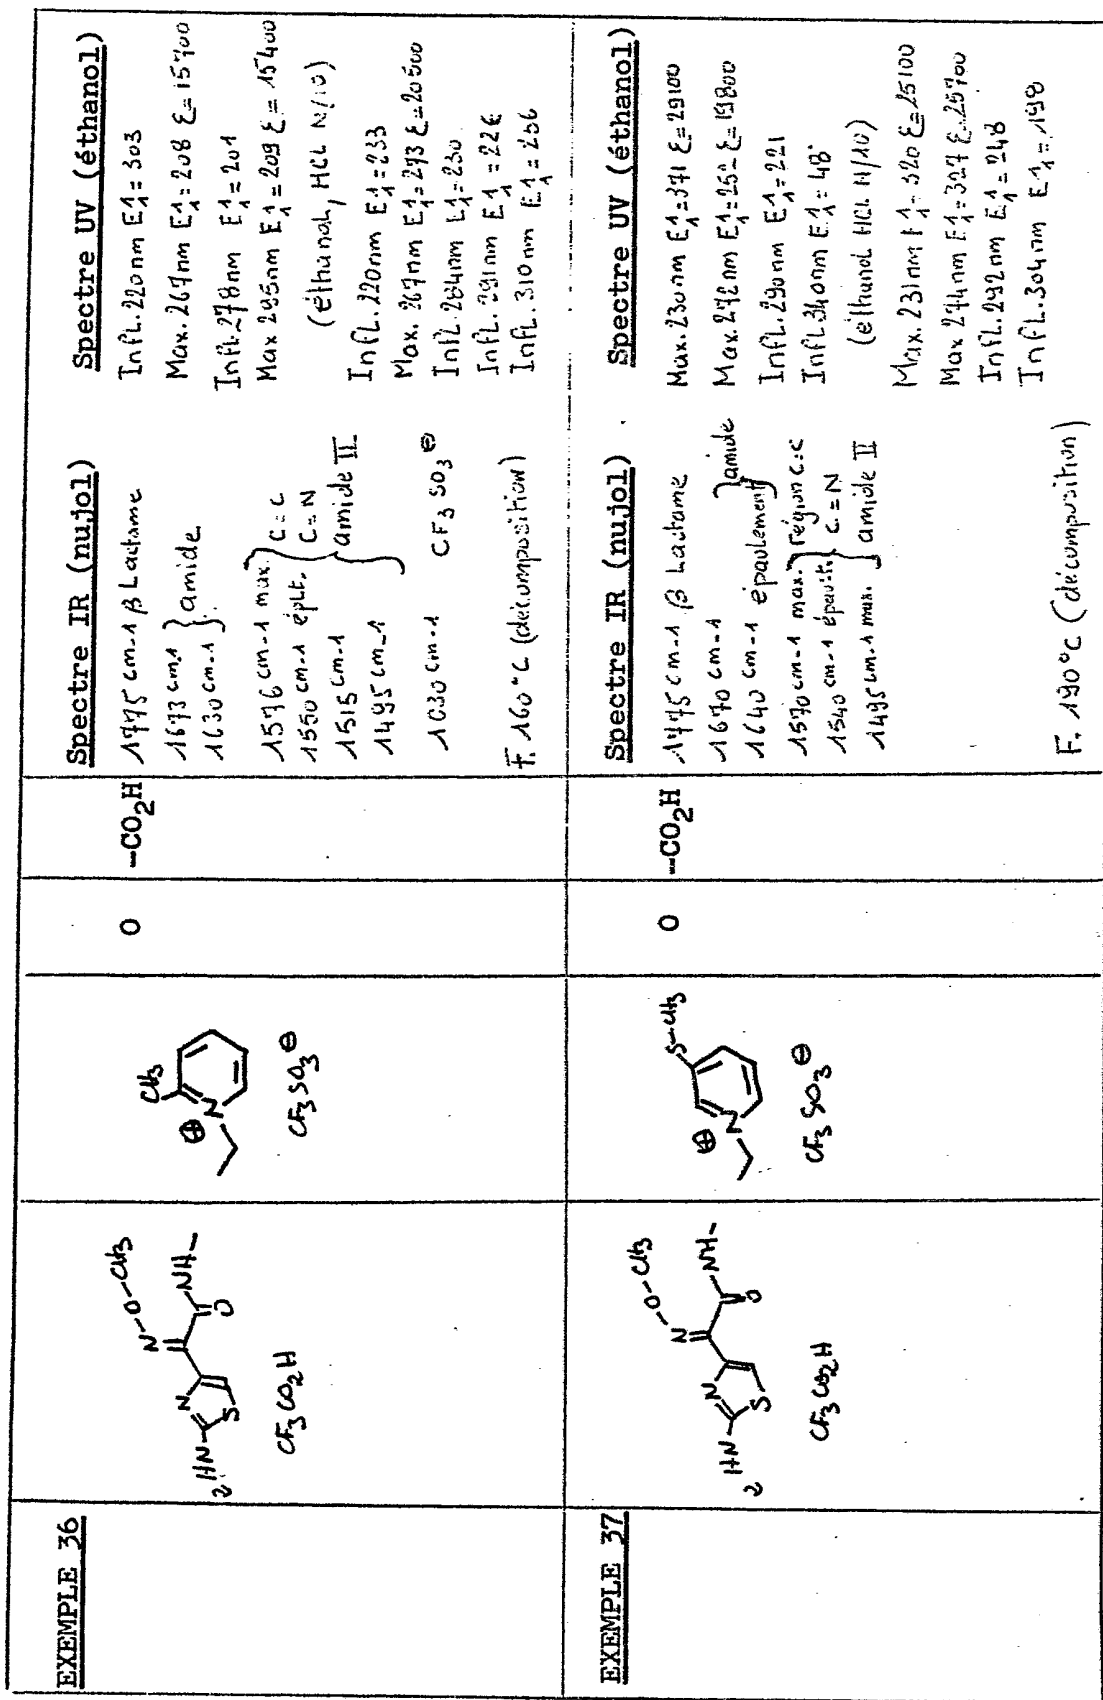 EXEMPLE 36
2HN
N
S
N-O-CH3
O
NH-
CF3CO2H
CH3
⊕
N
CF3SO3⊖
O
-CO2H
Spectre IR (nujol)
1775 cm-1 β Lactame
1673 cm-1 } amide
1630 cm-1
1576 cm-1 max. } C=C
1550 cm-1 éplt. C=N
1515 cm-1 } amide II
1495 cm-1
1030 cm-1 CF3SO3⊖
F. 160°C (décomposition)
Spectre UV (éthanol)
Infl. 220nm E11=303
Max. 267nm E11=208 ε=15700
Infl. 278nm E11=201
Max 295nm E11=209 ε=15400
(éthanol, HCl N/10)
Infl. 220nm E11=233
Max. 267nm E11=273 ε=20500
Infl. 284nm E11=230
Infl. 291nm E11=226
Infl. 310nm E11=
EXEMPLE 37
2HN
N
S
N-O-CH3
O
NH-
CF3CO2H
S-CH3
⊕
N
CF3SO3⊖
O
-CO2H
Spectre IR (nujol)
1775 cm-1 β Lactame
1670 cm-1 } amide
1640 cm-1 épaulement
1570 cm-1 max. } région C=C
1540 cm-1 C=N
1495 cm-1 max. } amide II
F. 190°C (décomposition)
Spectre UV (éthanol)
Max. 230nm E11=371 ε=29100
Max. 272nm E11=252 ε=19800
Infl. 290nm E11=221
Infl 340nm E11=48
(éthanol HCl N/10)
Max. 231nm E11=320 ε=25100
Max 274nm E11=327 ε=25700
Infl. 292nm E11=248
Infl. 304nm E11=198